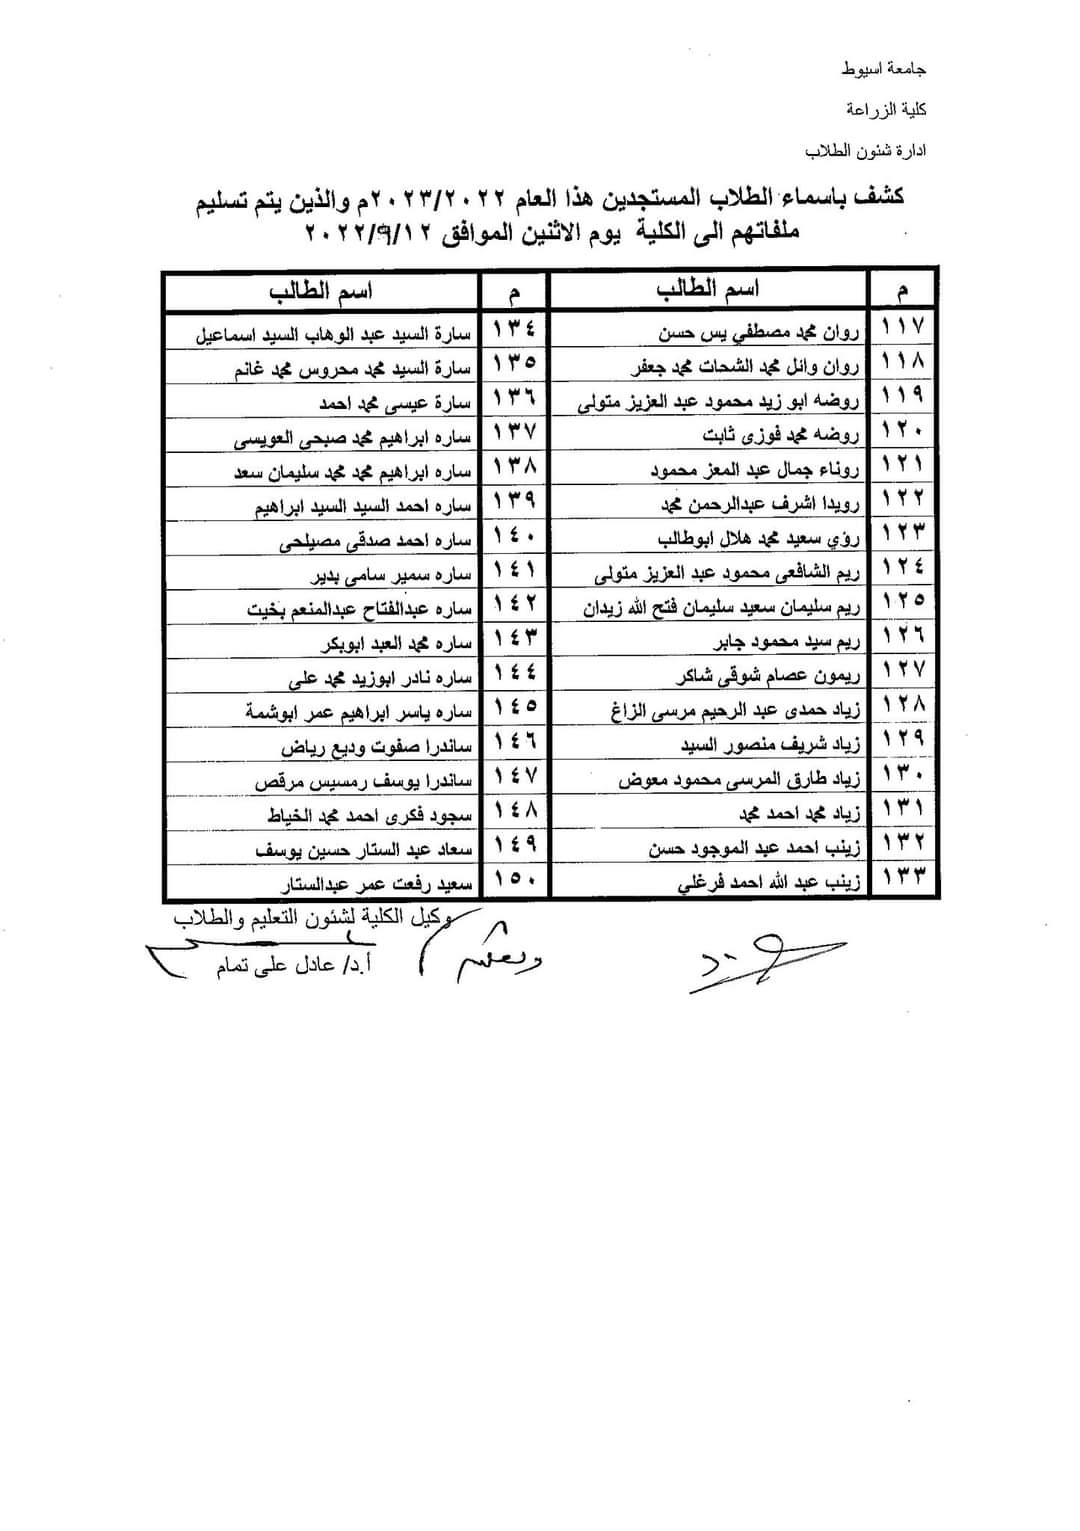 جامعة اسيوط
كلية الزراعة
ادارة شئون الطلاب
كشف باسماء الطلاب المستجدين هذا العام ٢٠٢٣/٢٠٢٢م والذين يتم تسليم
ملفاتهم الى الكلية يوم الاثنين الموافق ٢٠٢٢/٩/١٢
م اسم الطالب م اسم الطالب
١١٧ روان محمد مصطفي يس حسن ١٣٤ سارة السيد عبد الوهاب السيد اسماعيل
١١٨ روان وائل محمد الشحات محمد جعفر ١٣٥ سارة السيد محمد محروس محمد غانم
١١٩ روضه ابو زيد محمود عبد العزيز متولى ١٣٦ سارة عيسى محمد احمد
١٢٠ روضه محمد فوزى ثابت ١٣٧ ساره ابراهيم محمد صبحي العويسى
١٢١ روناء جمال عبد المعز محمود ١٣٨ ساره ابراهيم محمد محمد سليمان سعد
١٢٢ رويدا اشرف عبدالرحمن محمد ١٣٩ ساره احمد السيد السيد ابراهيم
١٢٣ رؤي سعيد محمد هلال ابوطالب ١٤٠ ساره احمد صدقى مصيلحى
١٢٤ ريم الشافعى محمود عبد العزيز متولى ١٤١ ساره سمير سامى بدير
١٢٥ ريم سليمان سعيد سليمان فتح الله زيدان ١٤٢ ساره عبدالفتاح عبدالمنعم بخيت
١٢٦ ريم سيد محمود جابر ١٤٣ ساره محمد العبد ابوبكر
١٢٧ ريمون عصام شوقى شاكر ١٤٤ ساره نادر ابوزيد محمد على
١٢٨ زياد حمدى عبد الرحيم مرسى الزاغ ١٤٥ ساره ياسر ابراهيم عمر ابوشمة
١٢٩ زياد شريف منصور السيد ١٤٦ ساندرا صفوت وديع رياض
١٣٠ زياد طارق المرسى محمود معوض ١٤٧ ساندرا يوسف رمسيس مرقص
١٣١ زياد محمد احمد محمد ١٤٨ سجود فكرى احمد محمد الخياط
١٣٢ زينب احمد عبد الموجود حسن ١٤٩ سعاد عبد الستار حسين يوسف
١٣٣ زينب عبد الله احمد فرغلي ١٥٠ سعيد رفعت عمر عبدالستار
وكيل الكلية لشئون التعليم والطلاب
أ.د/ عادل على تمام